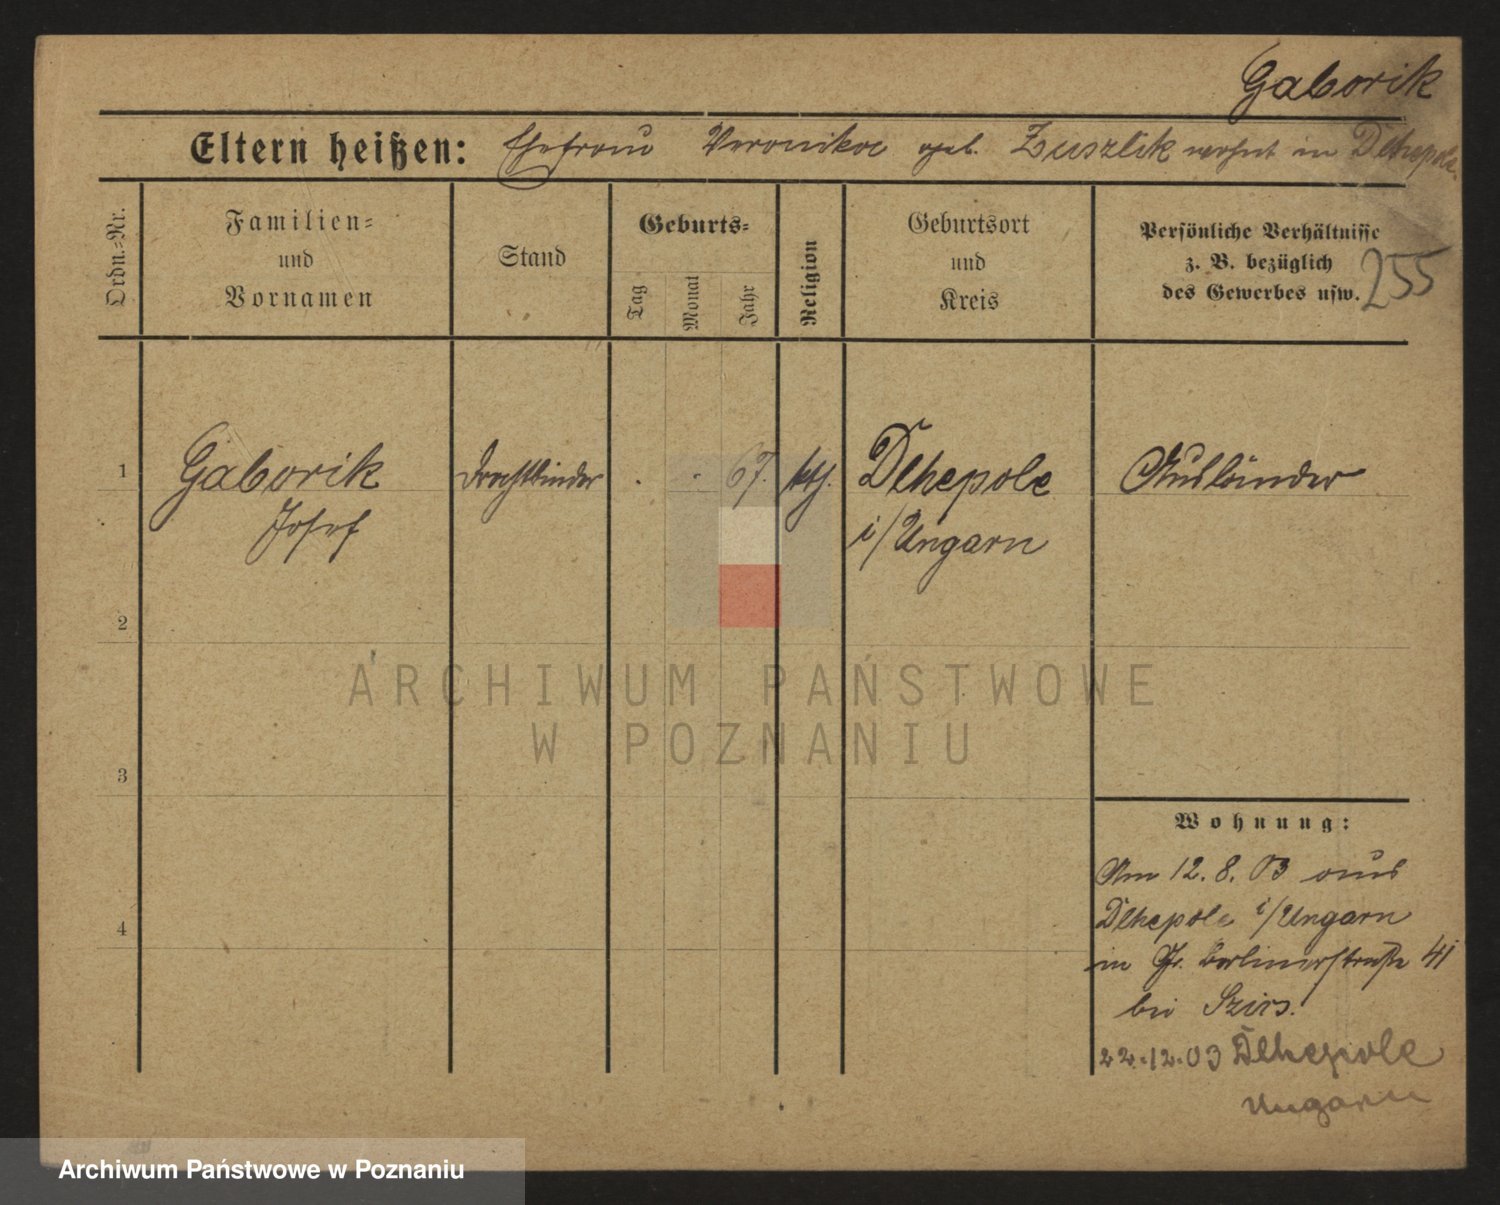 Gaborik
Eltern heißen: Ehefrau Veronika geb. Zuszlik wohnt in Dlhepole.
Ordn.-Nr.
Familien- und Vornamen
Stand
Geburts-
Tag
Monat
Jahr
Religion
Geburtsort und Kreis
Persönliche Verhältnisse z. B. bezüglich des Gewerbes usw.
255
1
Gaborik
Josef
Drahtbinder
67.
kth.
Dlhepole
i/Ungarn
Ausländer
2
3
4
Wohnung:
Am 12. 8. 03 aus
Dlhepole i/Ungarn
in Gr. Berlinerstraße 41
bei Szirs.
22.12.03 Dlhepole
Ungarn
ARCHIWUM PAŃSTWOWE
W POZNANIU
Archiwum Państwowe w Poznaniu